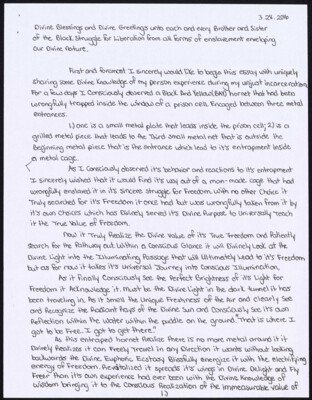 3.23.2016
Divine Blessings and Divine Greetings unto each and every Brother and Sister
of the Black Struggle for Liberation from all forms of enslavement enveloping
our Divine Nature.
First and foremost I sincerely would like to begin this essay with uniquely
sharing some Divine Knowledge of my person experience during my unjust incarceration.
For a few days I Consciously observed a Black And Yellow (BAY) hornet that had been
wrongfully trapped inside the window of a prison cell. Encaged between three metal
entrances.
1) one is a small metal plate that leads inside the prison cell; 2) is a
grilled metal piece that leads to the third small metal net that is outside. The
Beginning metal piece that is the entrance which lead to it's entrapment inside
a metal cage.
As I Consciously observed it's behavior and reactions to it's entrapment
I sincerely wished that it would find it's way out of a man-made cage that had
wrongfully enslaved it in it's sincere struggle for Freedom. With no other Choice it
Truly searched for it's Freedom it once had but was wrongfully taken from it by
it's own Choices which has Divinely served it's Divine Purpose to Universally teach
it the True Value of Freedom.
Now it Truly Realize the Divine Value of it's True Freedom and Patiently
search for the Pathway out. Within a Conscious Glance it will Divinely Look at the
Divine Light into the Illuminating Passage that will Ultimately Lead to it's Freedom
but as for now it takes it's Universal Journey into Conscious Illumination.
As it finally Consciously see the Perfect Brightness of it's Light for
Freedom it Acknowledge it must be the Divine Light in the dark tunnel it has
been traveling in. As it smell the Unique Freshness of the Air and clearly see
and Recognize the Radiant Rays of the Divine Sun and Consciously see it's own
Reflection within the water within the puddle on the ground. "That is where I
got to be Free. I got to get there."
As this entraped hornet Realize there is no more metal around it it
Divinely Realizes it can freely travel in any Direction it wants without looking
backwards the Divine Euphoric Ecstasy Blissfully energizes it with the electrifying
energy of Freedom. Revitalized it spreads it's wings in Divine Delight and Fly
Freer than it's own experience had ever been with the Divine Knowledge of
Wisdom bringing it to the Conscious Realization of the immeasurable value of
1)